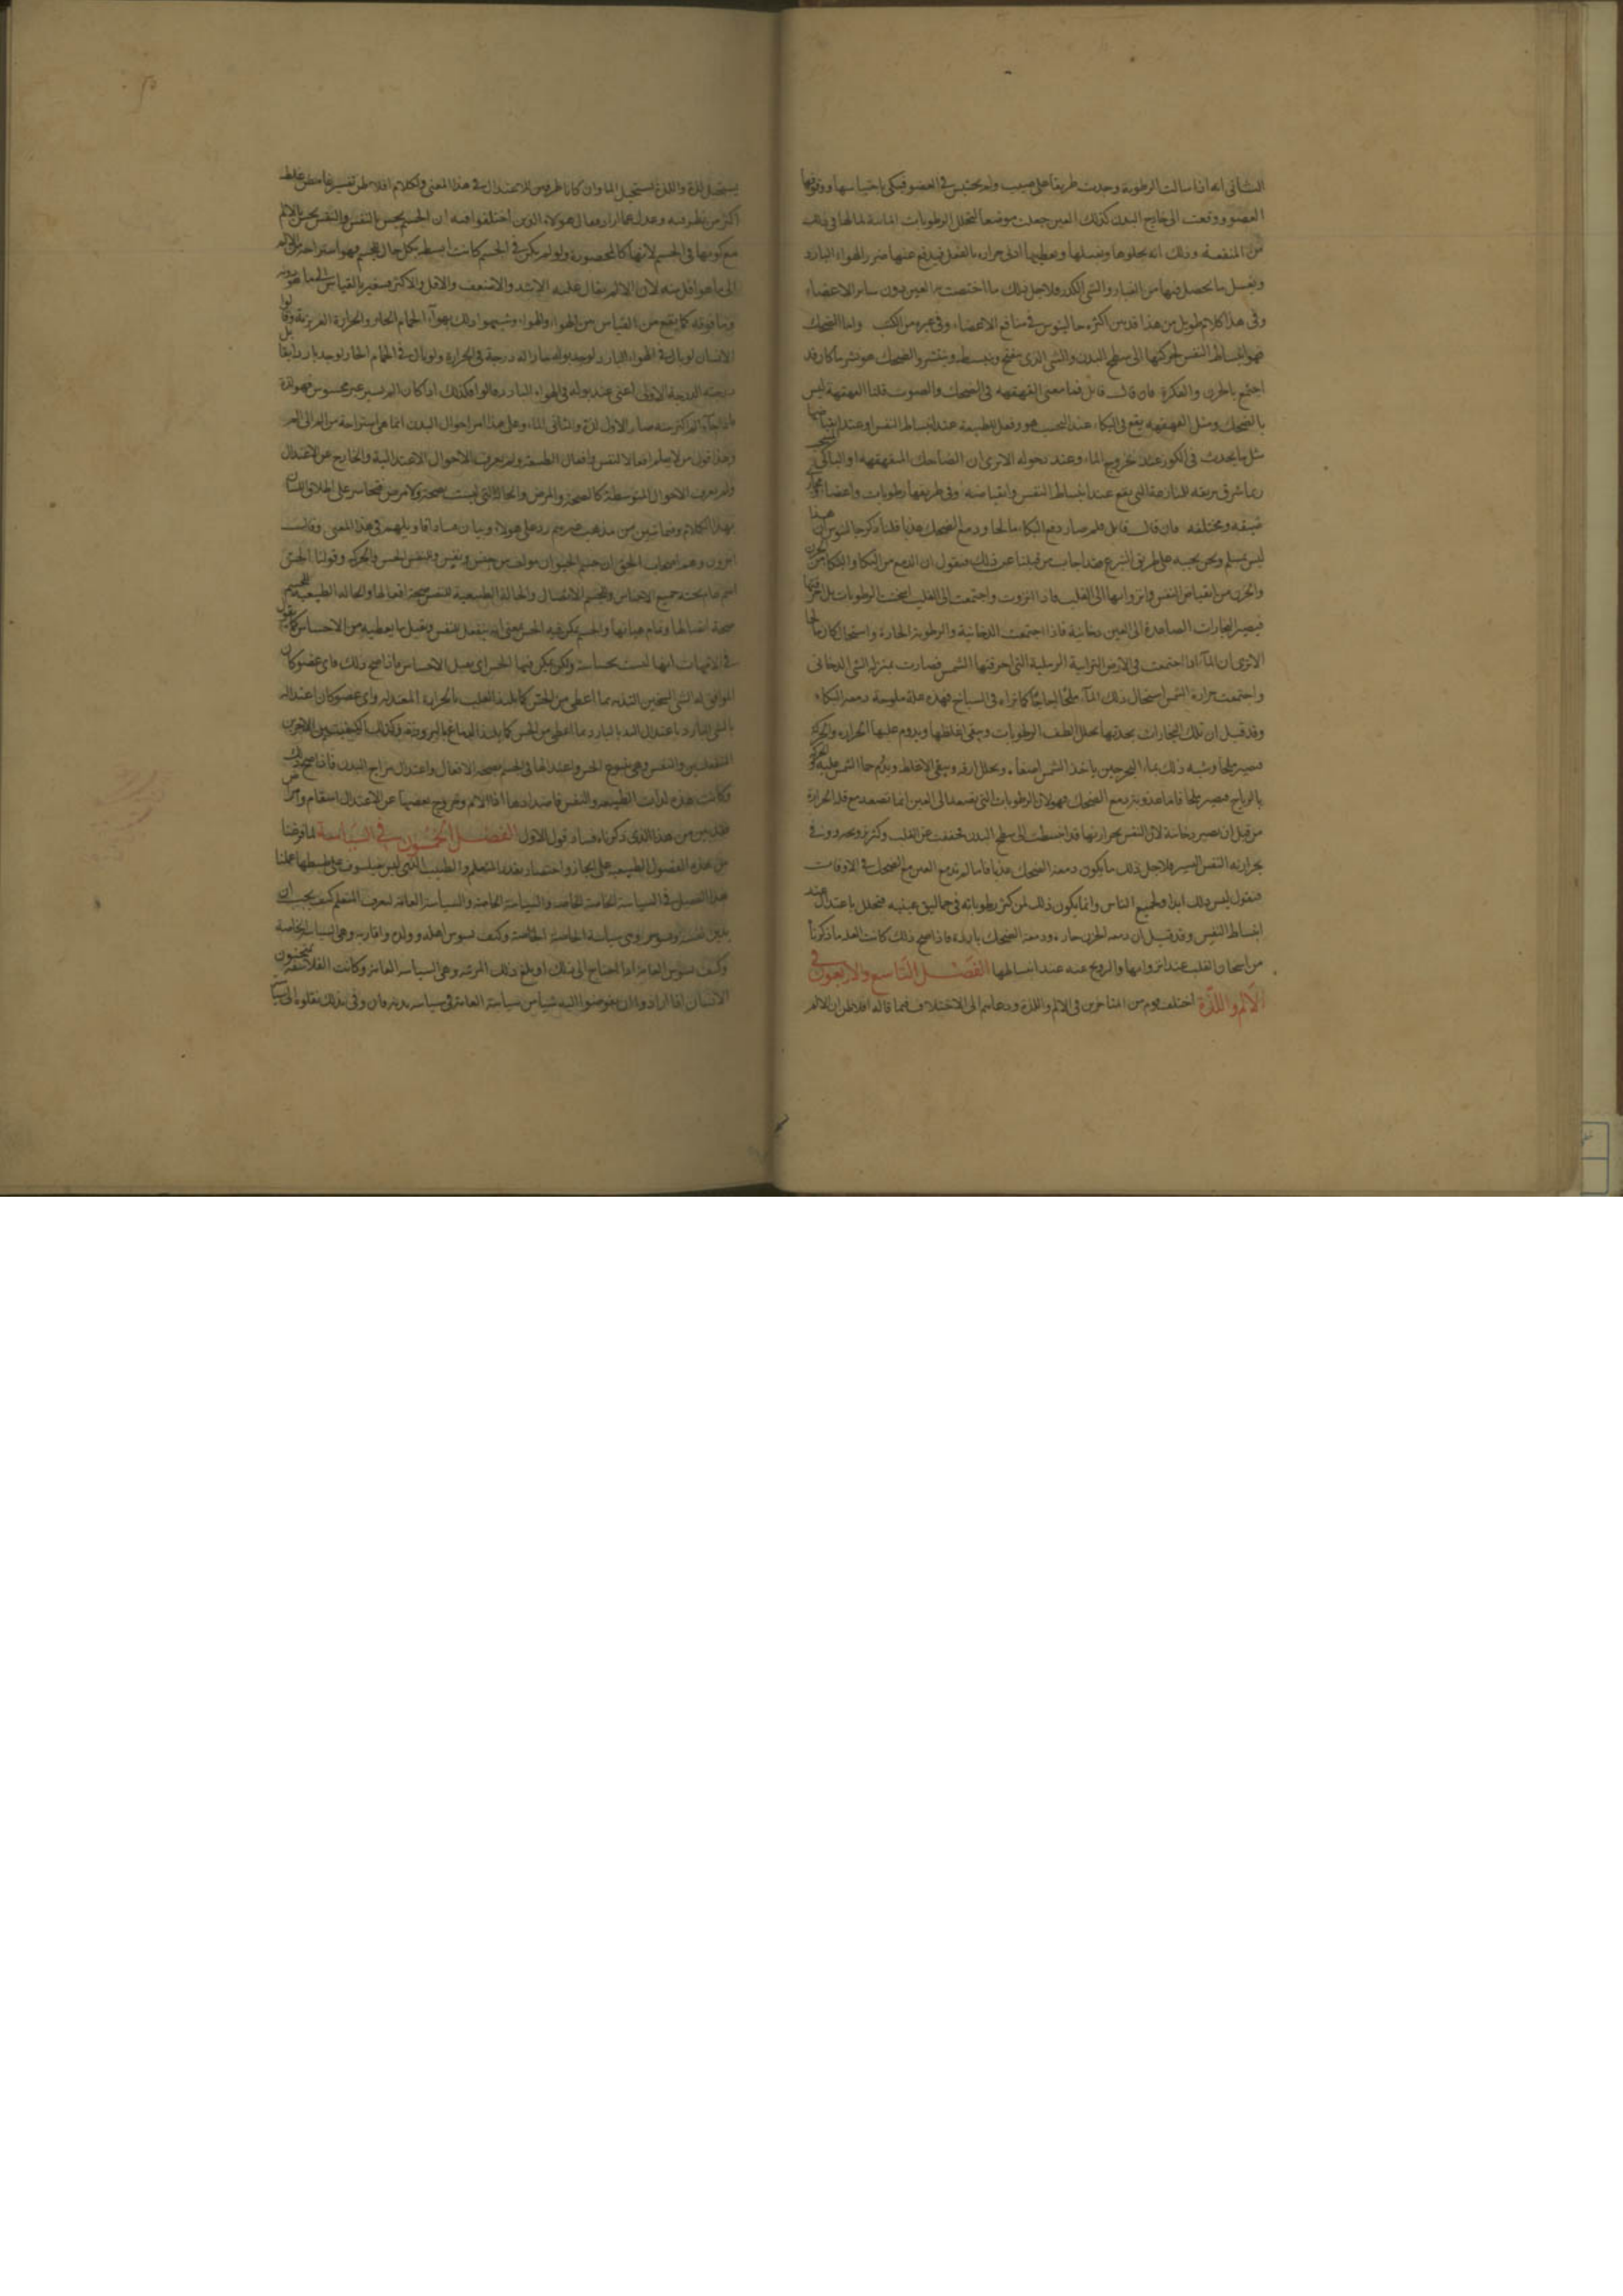 الثانى انه اذا سالت الرطوبة وجدت طريقا على صبيب ولم يحتبس فى العضو فيبكى باحتباسها ووقوفها
العضو ووقعت الى خارج البدن كذلك العين جعلت موضعا لتحلل الرطوبات الماسة لمالها فى ذلك
من المنفعة وذلك انه يجلوها ويغسلها ويعطيها ادنى حرارة بالفعل فيدفع عنها ضرر الهواء البارد
ويغسل ما يحصل فيها من الغبار والشى الكدر فلاجل ذلك ما اختصت به العين دون ساير الاعضاء
وفى هذا كلام طويل من هذا قد بين اكثره جالينوس فى منافع الاعضاء وفى غيره من الكتب واما الضحك
فهو انبساط النفس لحركتها الى سطح البدن والشى الذى ينفتح وينبسط وينتشر والضحك هو نشر ما كان قد
اجتمع بالحزن والفكرة فان قال قائل فما معنى القهقهه فى الضحك والصوت قلنا القهقهة ليس
بالضحك ومثل القهقهه يقع فى البكاء عند النحيب وهو فعل للطبيعة عند انبساط النفس او عند انقباضها
مثل ما يحدث فى الكوز عند خروج الماء وعند دخوله الاترى ان الضاحك المقهقهه او الباكى
ربما شرق بريقه للمنازعة التى يقع عند انبساط النفس وانقباضه وفى طريقها رطوبات واعضاء
ضيقه ومختلفه فان قال قايل فلم صار دمع البكاء مالحا ودمع الضحك عذبا قلنا ذكر جالينوس ان هذا
ليس بمسلم ونحن نجيبه على طريق التبرع فقد اجاب من قبلنا عن ذلك فنقول ان الدمع من البكا والبكا من الحزن
والحزن من انقباض النفس وانزوايها الى القلب فاذا انزوت واجتمعت الى القلب اسخنت الرطوبات بل احرقتها
فيصير البخارات الصاعدة الى العين دخانية فاذا اجتمعت الدخانية والرطوبة الحارة واستحال كان مالحا
الاترى ان الماء اذا اجتمعت فى الارض الترابية الرملية التى احرقتها الشمس فصارت بمنزلة الشى الدخانى
واجتمعت حرارة الشمس استحال ذلك الماء ملحا اجاجا كما نراه فى السباخ فهذه علة ملوحة دمعه البكاء
وقد قيل ان تلك البخارات بحدتها تحلل الطف الرطوبات ويبقى اغلظها ويدوم عليها الحرارة والحركة
فيصير ملحا وشبه ذلك بماء البحر حين ياخذ الشمس اصفاه ويحلل ارقه ويبقى الاغلظ ويدوم حما الشمس عليه
بالرياح فيصير ملحا فاما عذوبة دمع الضحك فهو لان الرطوبات التى يصعد الى العين انما تصعد مع قلة الحرارة
من قبل ان تصير دخانية لان النفس بحرارتها قد انبسطت الى سطح البدن فخففت عن القلب
بحرارته النفس اليسير فلاجل ذلك ما يكون دمعة الضحك عذبا فاما لم تدمع العين مع الضحك فى الاوقات
فنقول ليس ذلك ابدا ولجميع الناس وانما يكون ذلك لمن كثر رطوباته فى حماليق عينيه فتحلل باعتدال عند
انبساط النفس وقد قيل ان دمعه الحزن حاره ودمعة الضحك بارده فاذا صح ذلك كانت العلة ما ذكرنا
من اسخان القلب عند انزوايها والترويح عنه عند انبساطها الفصل التاسع والاربعون فى
الالم واللذة اختلف قوم من المتاخرين فى الالم واللذة ودعاهم الى الاختلاف فيما قاله افلاطن ان الالم
يستحيل لذة واللذة تستحيل الما وان كانا طرفين للاعتدال فى هذا المعنى ولكلام افلاطن تفسير غامض غلط
اكثر من نظر فيه وعدل عما اراد فقال هولاء الذين اختلفوا فيه ان الجسم يحس بالنفس والنفس تحس بالالم
مع كونها فى الجسم لانها كالمحصورة ولو لم يكن فى الجسم كانت
الى ما هو اقل منه لان الالم يقال عليه الاشد والاضعف والاقل والاكثر
وما فوقه كما يقع من القياس من الهواء والهواء وشبهوا ذلك بهواء الحمام الحار والحرارة الغريزية وقالوا
الانسان لو بال فى الهواء البارد لوجد بوله حارا له درجة فى الحرارة ولو بال فى الحمام الحار لوجد باردا
درجته الدرجة الاولى اعنى عند بوله فى الهواء البارد قالوا فكذلك اذا كان الم يسير غير محسوس فهو لذة
فاذا جاء الم اكثر منه صار الاول لذة والثانى الما وعلى هذا امر احوال البدن انما هى استراحة من الم الى الم
وهذا قول من لا يعلم افعال النفس وافعال الطبيعة ولم يعرف الاحوال الاعتدالية والخارج عن الاعتدال
ولم يعرف الاحوال المتوسطة كالصحة والمرض والحالة التى ليست بصحة ولا مرض فتجاسر على اطلاق اللسان
بهذا الكلام وفيما تبين من مذهب غيرهم رد على هولاء وبيان فساد اقاويلهم فى هذا المعنى وقالت
اخرون وهم اصحاب الحق ان جسم الحيوان مولف من جنس ونفس وللنفس الحس والحركة وقولنا الحس
اسم عام تحته جميع الاجناس وللجسم الانفصال والحالة الطبيعية للنفس صحة افعالها والحاله الطبيعية للجسم
صحة اتصالها وتمام هياتها والجسم يكون فيه الحس بمعنى انه ينفعل للنفس ويقبل ما يعطيه من الاحساس كما نقول
فى الامهات انها ليست بحساسة ولكن يمكن فيها الحس اى يقبل الاحساس فاذا صح ذلك فاى عضو كان
الموافق له الشى السخين التذ به بما اعطى من الحس كما يلتذ القلب بالحرارة المعتدلة واى عضو كان اعتداله
بالشى البارد باعتدال التذ بالبارد بما اعطى من الحس كما يلتذ الدماغ بالبرودة وكذلك الكيفيتين الاخريين
المنفعلتين والنفس وهى ينبوع الحس واعتدالها فى الجسم بصحة الافعال واعتدال مزاج البدن فاذا صح ذلك
وكانت هذه لذات الطبيعه والنفس فاضدادها اذا الالم وخروج بعضها عن الاعتدال اسقام وامراض
فقد تبين من هذا الذى ذكرناه فساد قول الاول الفصل الخمسون فى السياسة لما فرغنا
من هذه الفصول الطبيعية على ايجاز واختصار بقدر المتعلم والطبيب الذى ليس بفيلسوف على بسطها عملنا
هذا الفصل فى السياسة الخاصة الخاصه والسياسة الخاصة والسياسة العامة ليعرف المتعلم كيف يجب ان
يدبر نفسه ويسوس وهى سياسة الخاصة الخاصة وكيف يسوس اهله وولده واقاربه وهى السياسة الخاصة
وكيف يسوس العامة اذا احتاج الى ذلك او بلغ ذلك المرتبه وهى السياسه العامة وكانت الفلاسفة يمتحنون
الانسان اذا ارادوا ان يفوضوا اليه شيا من سياسة العامة فى سياسه بدنه فان وفى بذلك نقلوه الى سياسة